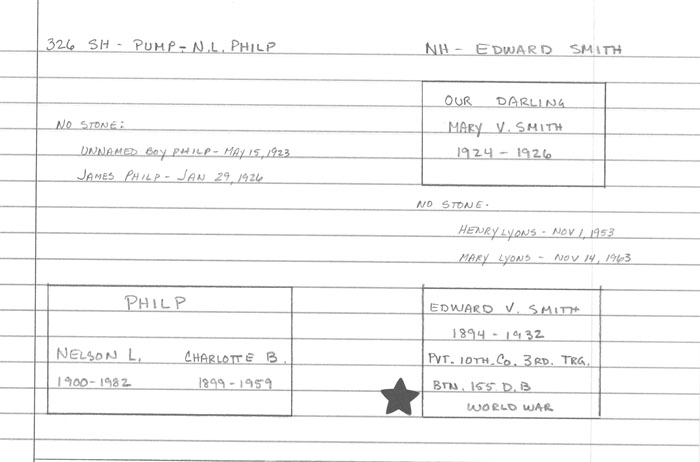 326 SH - PUMP - N.L. PHILP
NH - EDWARD SMITH
OUR DARLING
MARY V. SMITH
1924 - 1926
NO STONE:
UNNAMED BOY PHILP - MAY 15, 1923
JAMES PHILP - JAN 29, 1926
NO STONE.
HENRY LYONS - NOV 1, 1953
MARY LYONS - NOV 14, 1963
PHILP
NELSON L. CHARLOTTE B.
1900-1982 1899-1959
EDWARD V. SMITH
1894 - 1932
PVT. 10TH. CO. 3RD. TRG.
BTN. 155 D.B
WORLD WAR